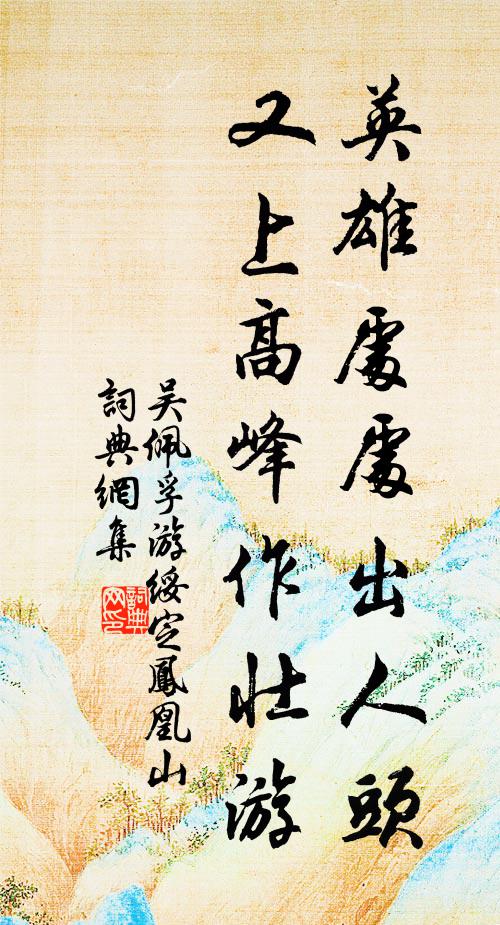 英雄處處出人頭
又上高峰作壯游
吴佩孚游綏定鳳凰山
詞典網集
詞典
网印